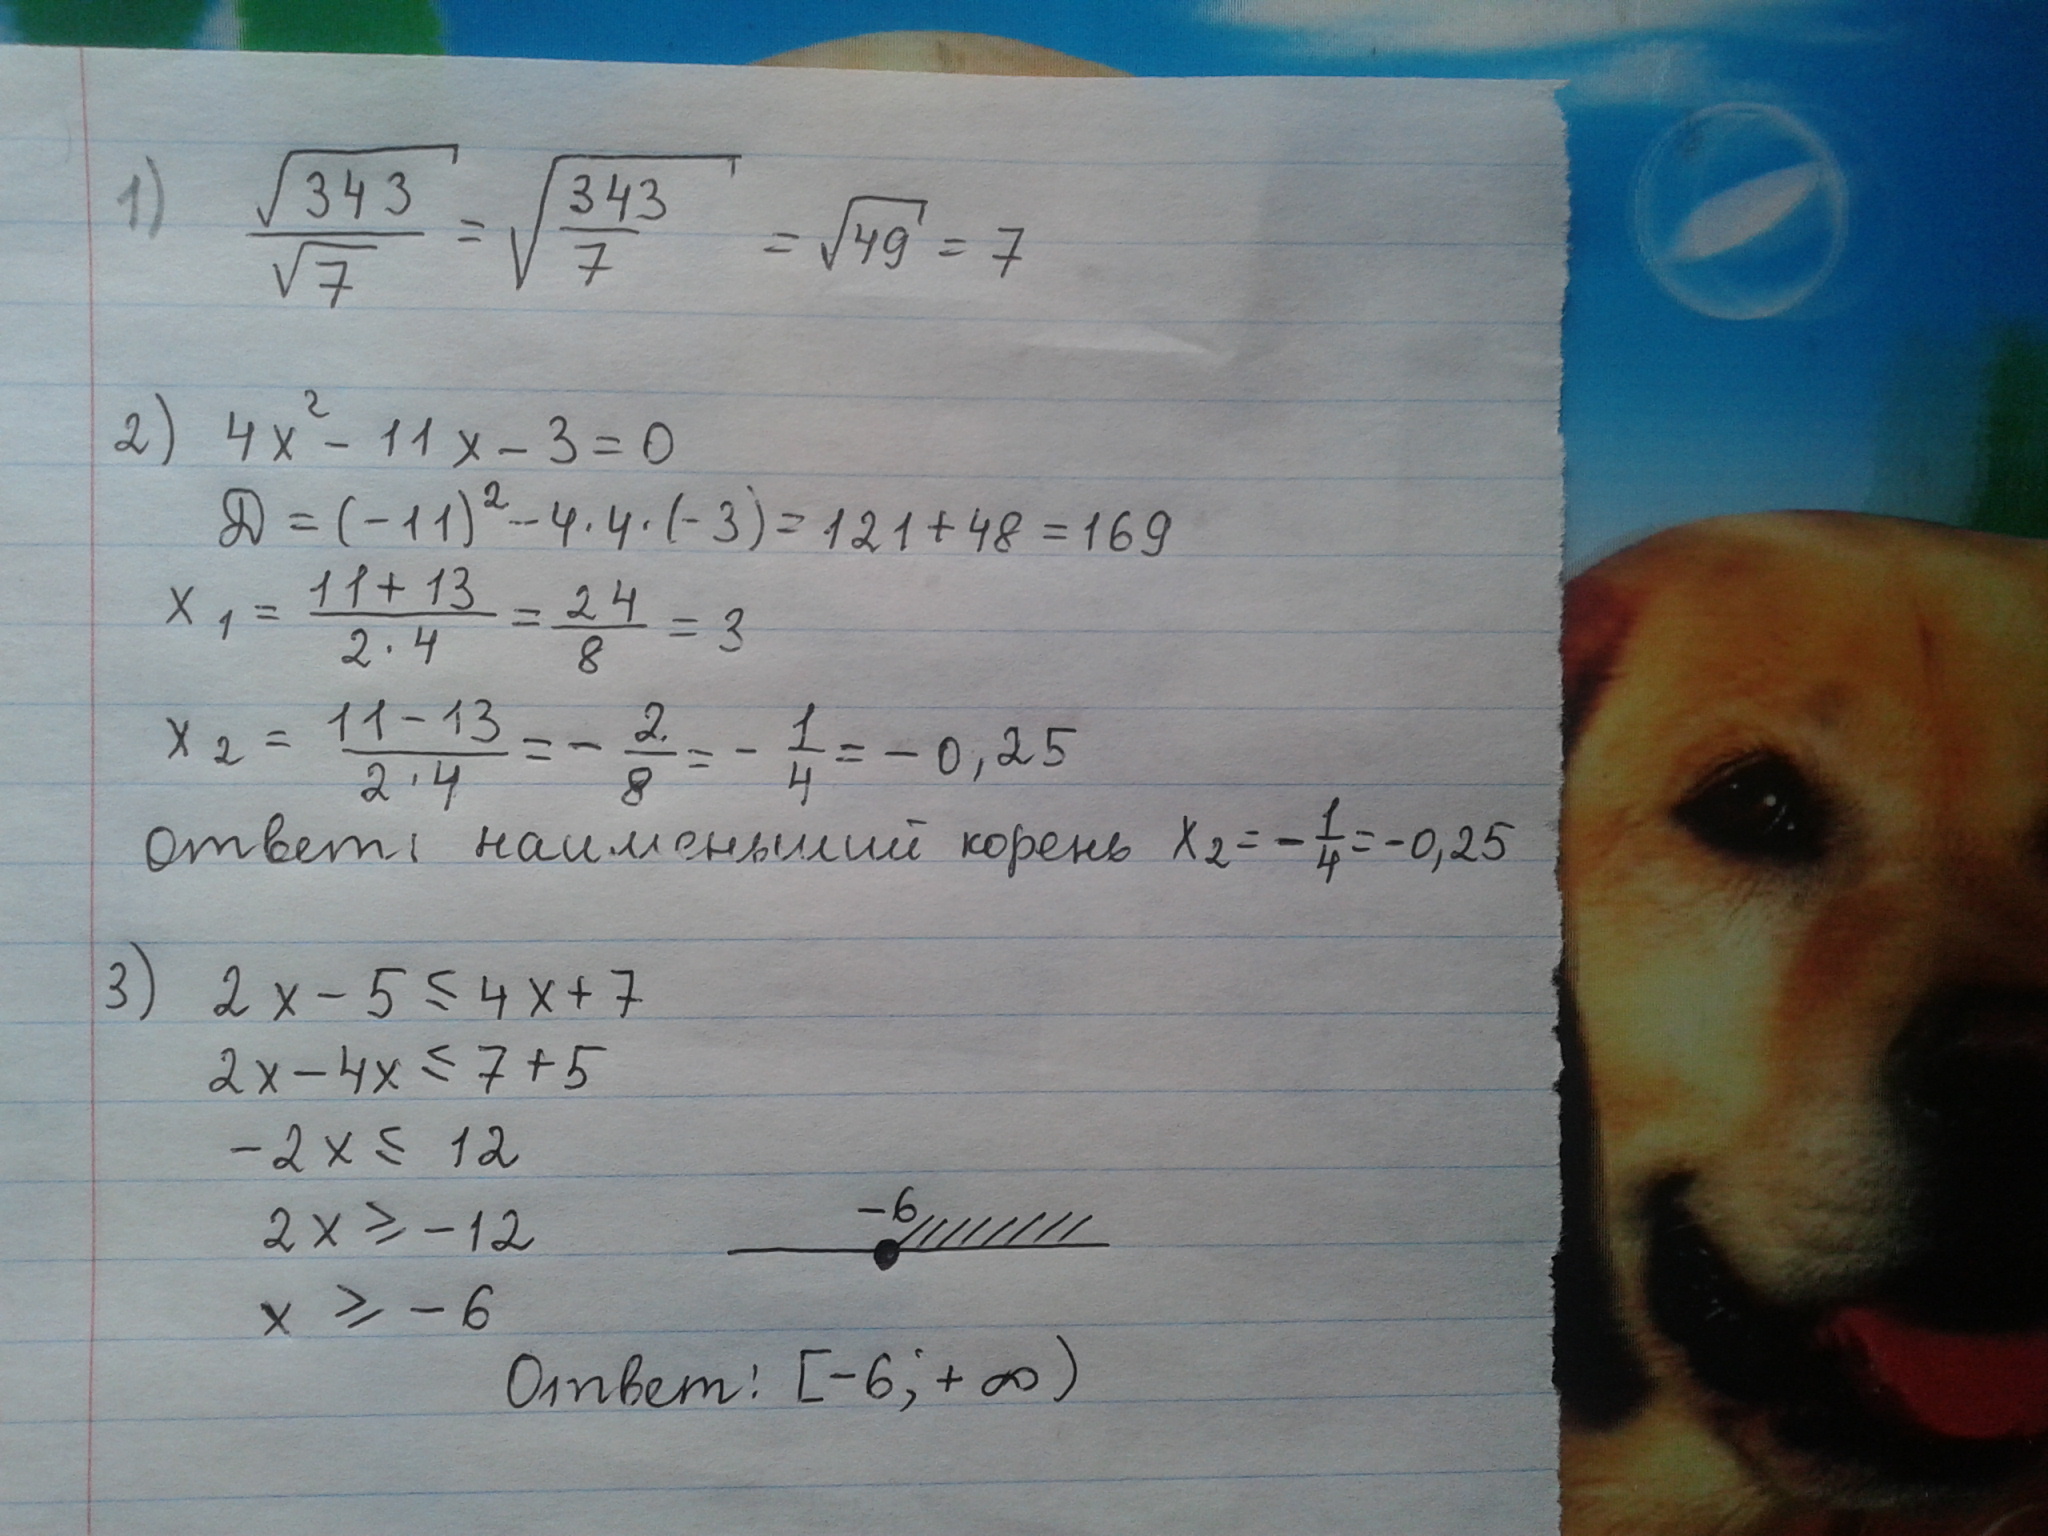 1) √343/√7 = √(343/7) = √49 = 7
2) 4x² - 11x - 3 = 0
D = (-11)² - 4·4·(-3) = 121 + 48 = 169
x₁ = (11 + 13)/(2·4) = 24/8 = 3
x₂ = (11 - 13)/(2·4) = -2/8 = -1/4 = -0,25
ответ: наименьший корень x₂ = -1/4 = -0,25
3) 2x - 5 ≤ 4x + 7
2x - 4x ≤ 7 + 5
-2x ≤ 12
2x ≥ -12
-6
x ≥ -6
Ответ: [-6; +∞)